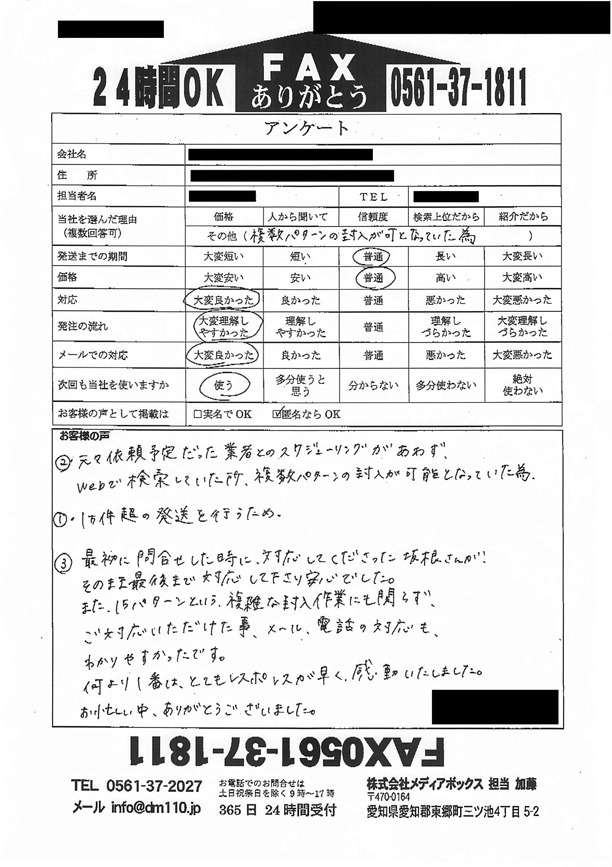 24時間OK
FAX
ありがとう
0561-37-1811
アンケート
会社名
住　所
担当者名　TEL
当社を選んだ理由（複数回答可）　価格　人から聞いて　信頼度　検索上位だから　紹介だから
その他（複数パターンの封入が可となっていた為　）
発送までの期間　大変短い　短い　普通　長い　大変長い
価格　大変安い　安い　普通　高い　大変高い
対応　大変良かった　良かった　普通　悪かった　大変悪かった
発注の流れ　大変理解しやすかった　理解しやすかった　普通　理解しづらかった　大変理解しづらかった
メールでの対応　大変良かった　良かった　普通　悪かった　大変悪かった
次回も当社を使いますか　使う　多分使うと思う　分からない　多分使わない　絶対使わない
お客様の声として掲載は　□実名でOK　☑匿名ならOK
お客様の声
②・元々依頼予定だった業者とのスケジューリングがあわず、
Webで検索していた所、複数パターンの封入が可能となっていた為.
①・1万件超の発送を行うため.
③ 最初に問合せした時に、対応してくださった坂根さんが、
そのまま最後まで対応して下さり安心でした。
また、15パターンという、複雑な封入作業にも関らず、
ご対応いただけた事、メール、電話の対応も、
わかりやすかったです。
何より1番は、とてもレスポンスが早く、感動いたしました。
お忙しい中、ありがとうございました。
FAX0561-37-1811
TEL 0561-37-2027
メール info@dm110.jp
お電話でのお問合せは
土日祝祭日を除く9時～17時
365日 24時間受付
株式会社メディアボックス 担当 加藤
〒470-0164
愛知県愛知郡東郷町三ツ池4丁目5-2